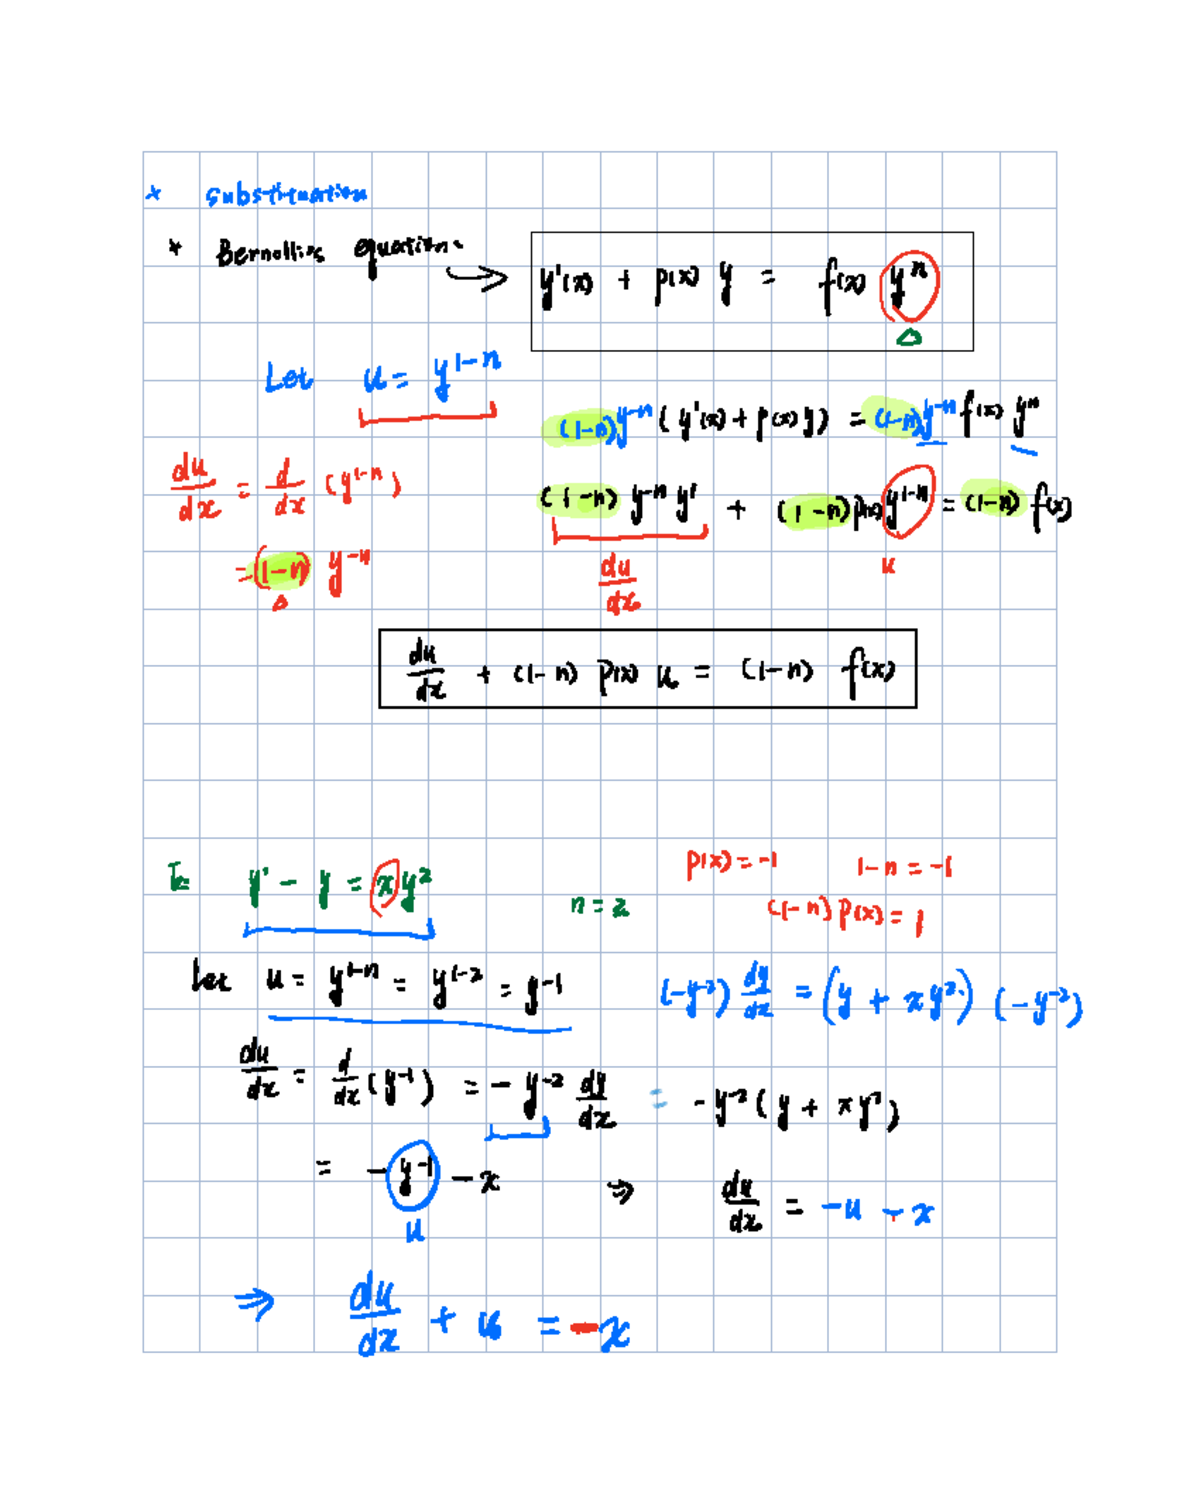 * substitution
* Bernollis equations → y'(x) + p(x) y = f(x) yⁿ
Let u = y¹⁻ⁿ
(1-n)y⁻ⁿ (y'(x) + p(x)y) = (1-n)y⁻ⁿ f(x) yⁿ
du/dx = d/dx (y¹⁻ⁿ)
(1-n) y⁻ⁿ y' + (1-n)p(x)y¹⁻ⁿ = (1-n) f(x)
= (1-n) y⁻ⁿ
du/dx
u
du/dx + (1-n) p(x) u = (1-n) f(x)
y' - y = xy²
n = 2
p(x) = -1
1-n = -1
(1-n) p(x) = 1
Let u = y¹⁻ⁿ = y¹⁻² = y⁻¹
(-y⁻²) dy/dx = (y + xy²) (-y⁻²)
du/dx = d/dx (y⁻¹) = - y⁻² dy/dx = - y⁻² (y + xy²)
= - y⁻¹ - x ⇒ du/dx = -u - x
u
⇒ du/dx + u = -x